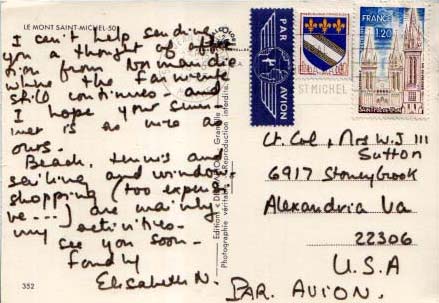 LE MONT SAINT-MICHEL-50
I can't help sending
you a thought of affec
tion from Normandie
where the fair weather
still continues and
I hope your sum-
mer is as nice as
ours.
Beach, tennis and
sailing and window
shopping (too expensi-
ve...) are mainly
my activities.
See you soon.
Fondly
Elisabeth N.
352
Photographie véritable - Reproduction interdite
PAR AVION
FRANCE
1,20
ST MICHEL
Lt. Col, Mrs W.J III
Sutton
6917 Stoneybrook
Alexandria Va
22306
U.S.A
PAR AVION.